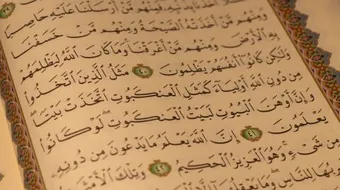 مَّنْ أَرْسَلْنَا عَلَيْهِ حَاصِبًا
وَمِنْهُم مَّنْ أَخَذَتْهُ ٱلصَّيْحَةُ وَمِنْهُم مَّنْ خَسَفْنَا
بِهِ ٱلْأَرْضَ وَمِنْهُم مَّنْ أَغْرَقْنَا وَمَا كَانَ ٱللَّهُ لِيَظْلِمَهُمْ
وَلَٰكِن كَانُوٓا۟ أَنفُسَهُمْ يَظْلِمُونَ ٤٠ مَثَلُ ٱلَّذِينَ ٱتَّخَذُوا۟
مِن دُونِ ٱللَّهِ أَوْلِيَآءَ كَمَثَلِ ٱلْعَنكَبُوتِ ٱتَّخَذَتْ بَيْتًا
وَإِنَّ أَوْهَنَ ٱلْبُيُوتِ لَبَيْتُ ٱلْعَنكَبُوتِ لَوْ كَانُوا۟
يَعْلَمُونَ ٤١ إِنَّ ٱللَّهَ يَعْلَمُ مَا يَدْعُونَ مِن دُونِهِۦ
مِن شَىْءٍ وَهُوَ ٱلْعَزِيزُ ٱلْحَكِيمُ ٤٢ وَتِلْكَ ٱلْأَمْثَٰلُ
لِلنَّاسِ وَمَا